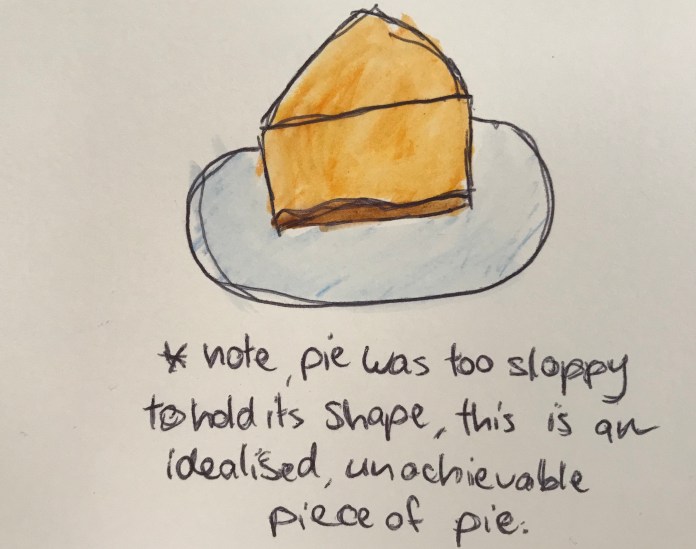 * note, pie was too sloppy
to hold its shape, this is an
idealised, unachievable
piece of pie.